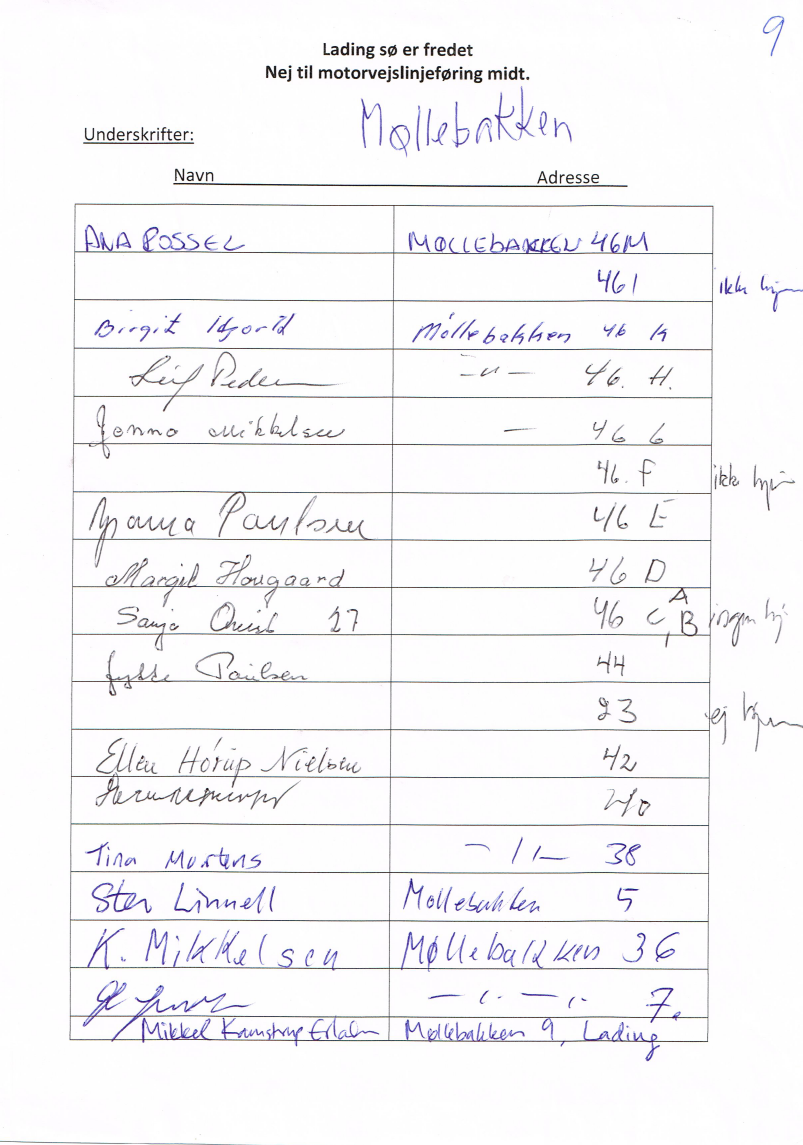 9
Lading sø er fredet
Nej til motorvejslinjeføring midt.
Møllebakken
Underskrifter:
Navn Adresse
ANA POSSEL MØLLEBAKKEN 46M
46 I ikke hjem
Birgit Møllebakken 46 K
Leif Peder — " — 46. H.
Jonna Mikkelsen — 46 G
46. F ikke hjem
Paulsen 46 E
Margit Hougaard 46 D
Sanja Quist 27 46 C, B A ingen hj
Jytte Paulsen 44
23 ej hjem
Ellen Hörup Nielsen 42
40
Tina Mortens — 11 — 38
Sten Linnell Møllebakken 5
K. Mikkelsen Møllebakken 36
— ı. — ı. 7.
Mikkel Kamstrup Erlandsen Møllebakken 9, Lading